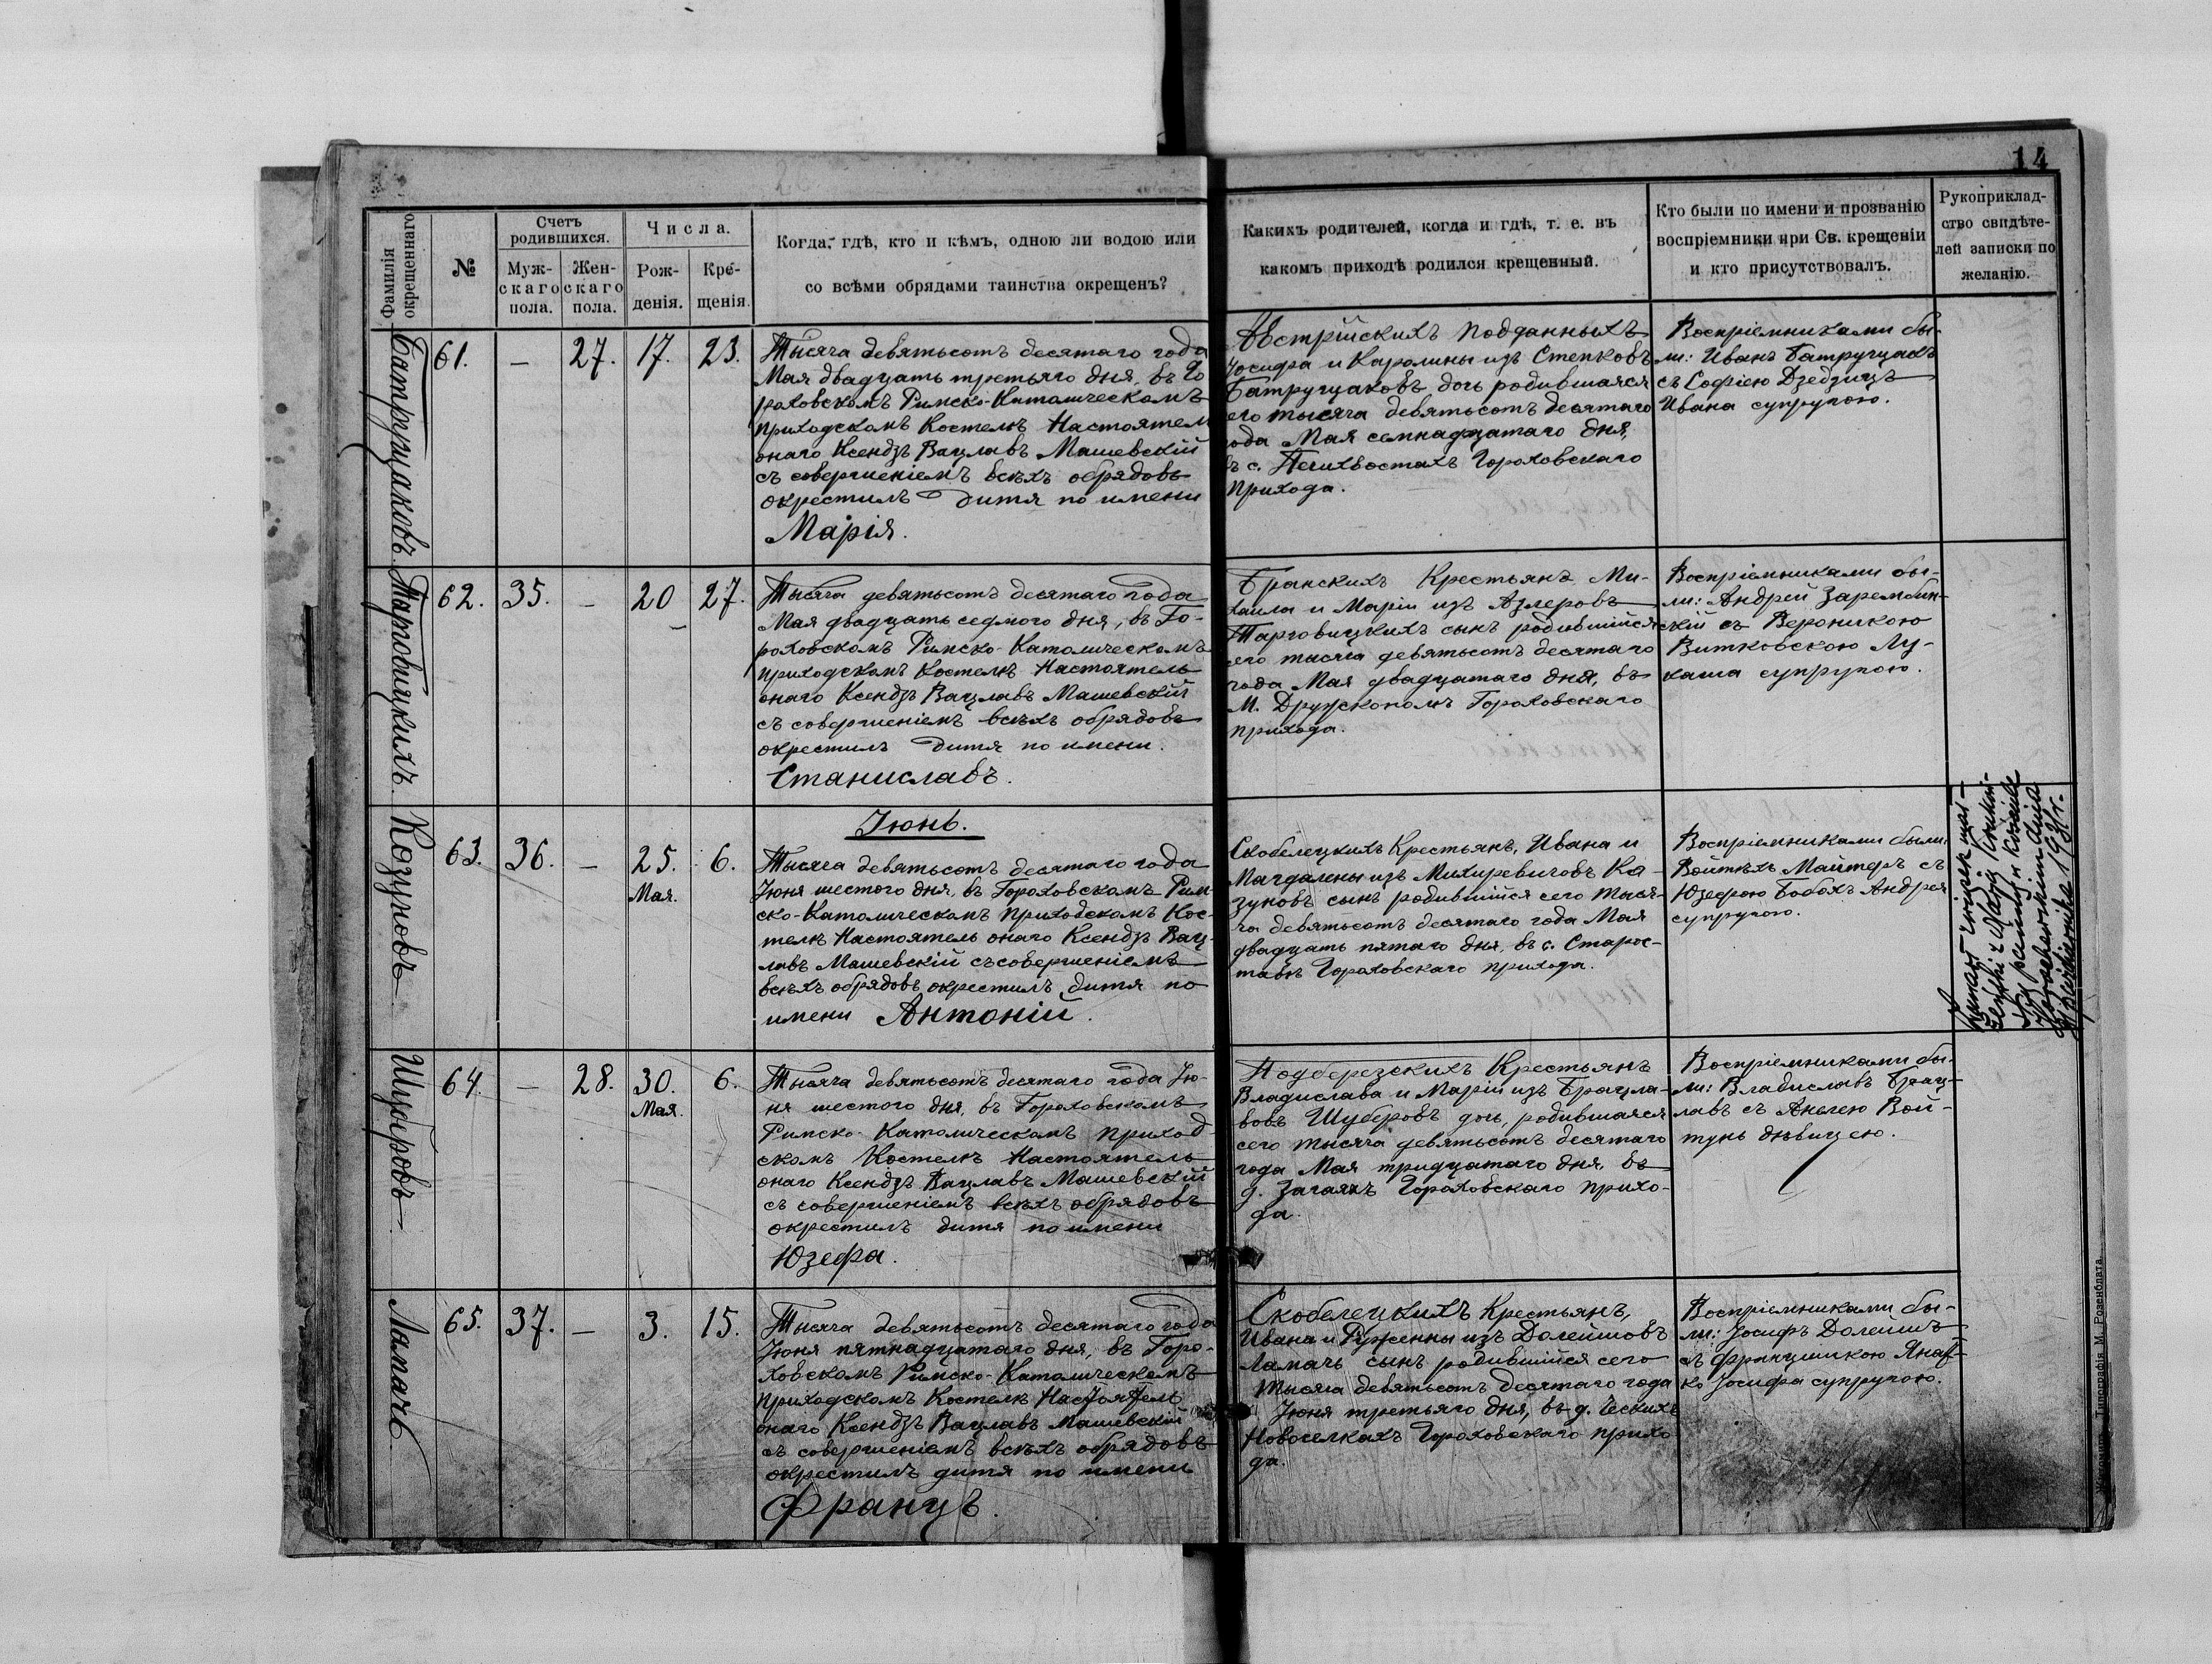 14
Фамилія
окрещеннаго
№
Счетъ
родившихся.
Муж-
скаго
пола.
Жен-
скаго
пола.
Числа.
Рож-
денія.
Кре-
щенія.
Когда, гдѣ, кто и кѣмъ, одною ли водою или
со всѣми обрядами таинства окрещенъ?
Какихъ родителей, когда и гдѣ, т. е. въ
какомъ приходѣ родился крещенный.
Кто были по имени и прозванію
воспріемники при Св. крещеніи
и кто присутствовалъ.
Рукоприклад-
ство свидѣте-
лей записки по
желанію.
Батругцаковъ.
61.
—
27.
17.
23.
Тысяча девятьсотъ десятаго года
Мая двадцать третьяго дня, въ Го
роховскомъ Римско-Католическомъ
приходскомъ Костелѣ Настоятел
онаго Ксендзъ Вацлавъ Машевскій
съ совершеніемъ всѣхъ обрядовъ
окрестилъ дитя по имени
Марія.
Австрійскихъ подданныхъ
Іосифа и Каролины изъ Степковъ
Батругцаковъ дочь родившаяся
его тысяча девятьсотъ десятаго
ода Мая семнадцатаго дня,
въ с. Печихвостахъ Гороховскаго
прихода.
Воспріемниками бы-
ли: Иванъ Батругцакъ
съ Софіею Дзедзицъ
Ивана супругою.
Тарговицкихъ.
62.
35.
—
20
27.
Тысяча девятьсотъ десятаго года
Мая двадцать седмого дня, въ Го-
роховскомъ Римско-Католическомъ
приходскомъ Костелѣ Настоятель
онаго Ксендзъ Вацлавъ Машевскій
съ совершеніемъ всѣхъ обрядовъ
окрестилъ дитя по имени.
Станиславъ.
Бранскихъ Крестьянъ Ми-
хаила и Маріи изъ Азлеровъ
Тарговицкихъ сынъ родившійся
сего тысяча девятьсотъ десятаго
года Мая двадцатаго дня, въ
М. Дружкополѣ Гороховскаго
прихода.
Воспріемниками бы-
ли: Андрей Зарембин-
скій съ Вероникою
Витковскою Лу-
каша супругою.
Козуновъ
63.
36.
—
25.
Мая.
6.
Іюнь.
Тысяча девятьсотъ десятаго года
Іюня шестого дня, въ Гороховскомъ Рим
ско-Католическомъ приходскомъ Кос-
телѣ Настоятель онаго Ксендзъ Вац-
лавъ Машевскій съ совершеніемъ
всѣхъ обрядовъ окрестилъ дитя по
имени Антоній.
Скобелецкихъ Крестьянъ, Ивана и
Магдалены изъ Михиревичовъ Ка-
зуновъ сынъ родившійся сего тыся-
ча девятьсотъ десятаго года Мая
двадцать пятаго дня, въ с. Старос-
тавѣ Гороховскаго прихода.
Воспріемниками были
Войтѣхъ Майтеръ съ
Юзефою Бобахъ Андрея
супругою.
1931 r.
Шуберовъ
64.
—
28.
30.
Мая.
6.
Тысяча девятьсотъ десятаго года Ію-
ня шестого дня, въ Гороховскомъ
Римско-Католическомъ приход
скомъ Костелѣ Настоятель
онаго Ксендзъ Вацлавъ Машевскій
съ совершеніемъ всѣхъ обрядовъ
окрестилъ дитя по имени
Юзефа.
Подберезскихъ Крестьянъ
Владислава и Маріи изъ Брацла-
вовъ Шуберовъ дочь, родившаяся
сего тысяча девятьсотъ десятаго
года Мая тридцатаго дня, въ
д. Загаяхъ Гороховскаго прихо-
да.
Воспріемниками бы-
ли: Владиславъ Брац-
лавъ съ Анелею Вой-
тунь дѣвицею.
Лапачъ
65.
37.
—
3.
15.
Тысяча девятьсотъ десятаго года
Іюня пятнадцатаго дня, въ Горо-
ховскомъ Римско-Католическомъ
приходскомъ Костелѣ Настоятель
онаго Ксендзъ Вацлавъ Машевскій
съ совершеніемъ всѣхъ обрядовъ
окрестилъ дитя по имени
Францъ.
Скобелецкихъ Крестьянъ,
Ивана и Руженны изъ Долейшовъ
Лапачъ сынъ родившійся сего
тысяча девятьсотъ десятаго года
Іюня третьяго дня, въ д. Ческихъ
Новоселкахъ Гороховскаго прихо
да.
Воспріемниками бы-
ли: Іосифъ Долейшъ
съ Францишкою Янат-
ко Іосифа супругою.
Житомиръ. Типографія М. Розенблата.